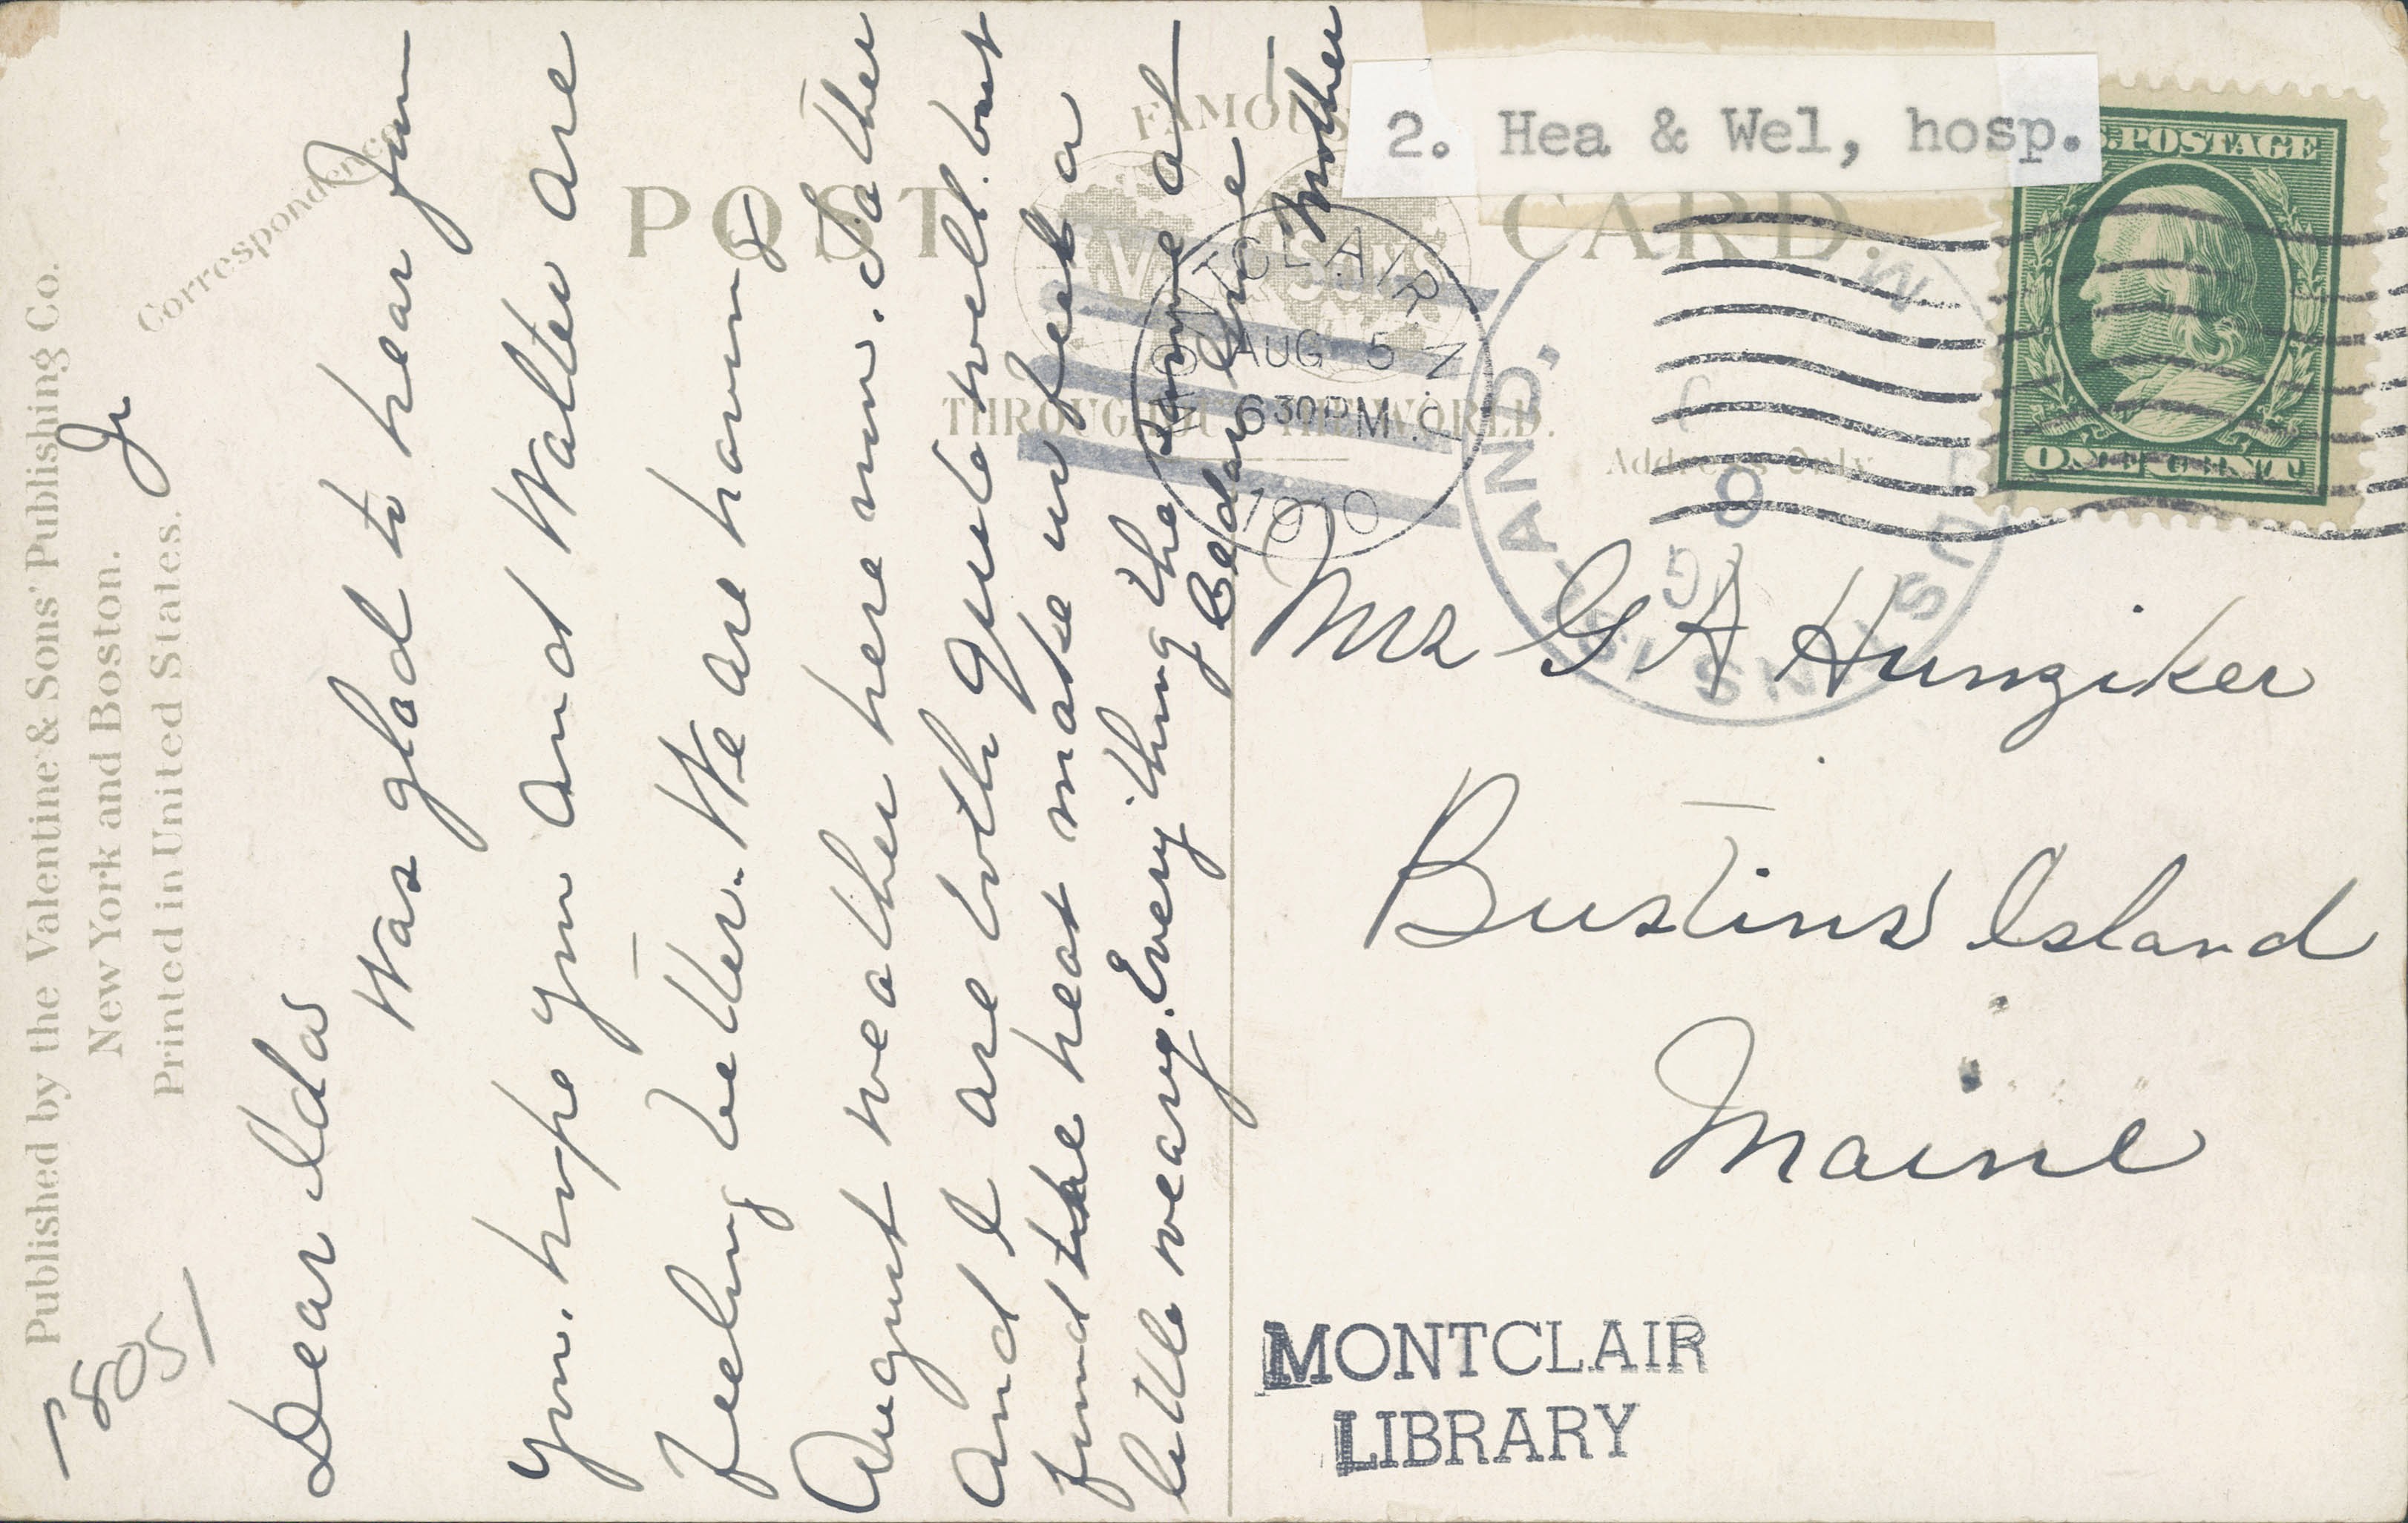 Published by the Valentine & Sons' Publishing Co.
New York and Boston.
Printed in United States.
Correspondence
Dear Ida
Was glad to hear from
you. hope you and Walter are
feeling better. We are having
August weather here now. Father
and I are both quite well. but
find the heat make us feel a
little weary. Every thing the same at
Cedar Ave
Mother
FAMOUS
POST CARD.
THROUGHOUT THE WORLD.
Address Only
2. Hea & Wel, hosp.
U.S. POSTAGE
ONE CENT
MONTCLAIR N.J.
AUG 5
6 30 PM
1910
BUSTINS ISLAND,
Mrs G A Hunziker
Bustins Island
Maine
MONTCLAIR
LIBRARY